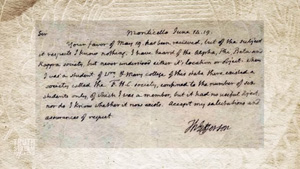 Sir Monticello June 14. 19.
Your favor of May 19. has been received, but of the subject
it respects I know nothing. I have heard of the Alpha, Phi Beta and
Kappa society, but never understood either it's location or object. when
I was a student of Wm. & Mary college of this state there existed a
society called the F. H. C. society, confined to the number of six
students only, of which I was a member, but it had no useful object,
nor do I know whether it now exists. Accept my salutations and
assurances of respect.
Th Jefferson